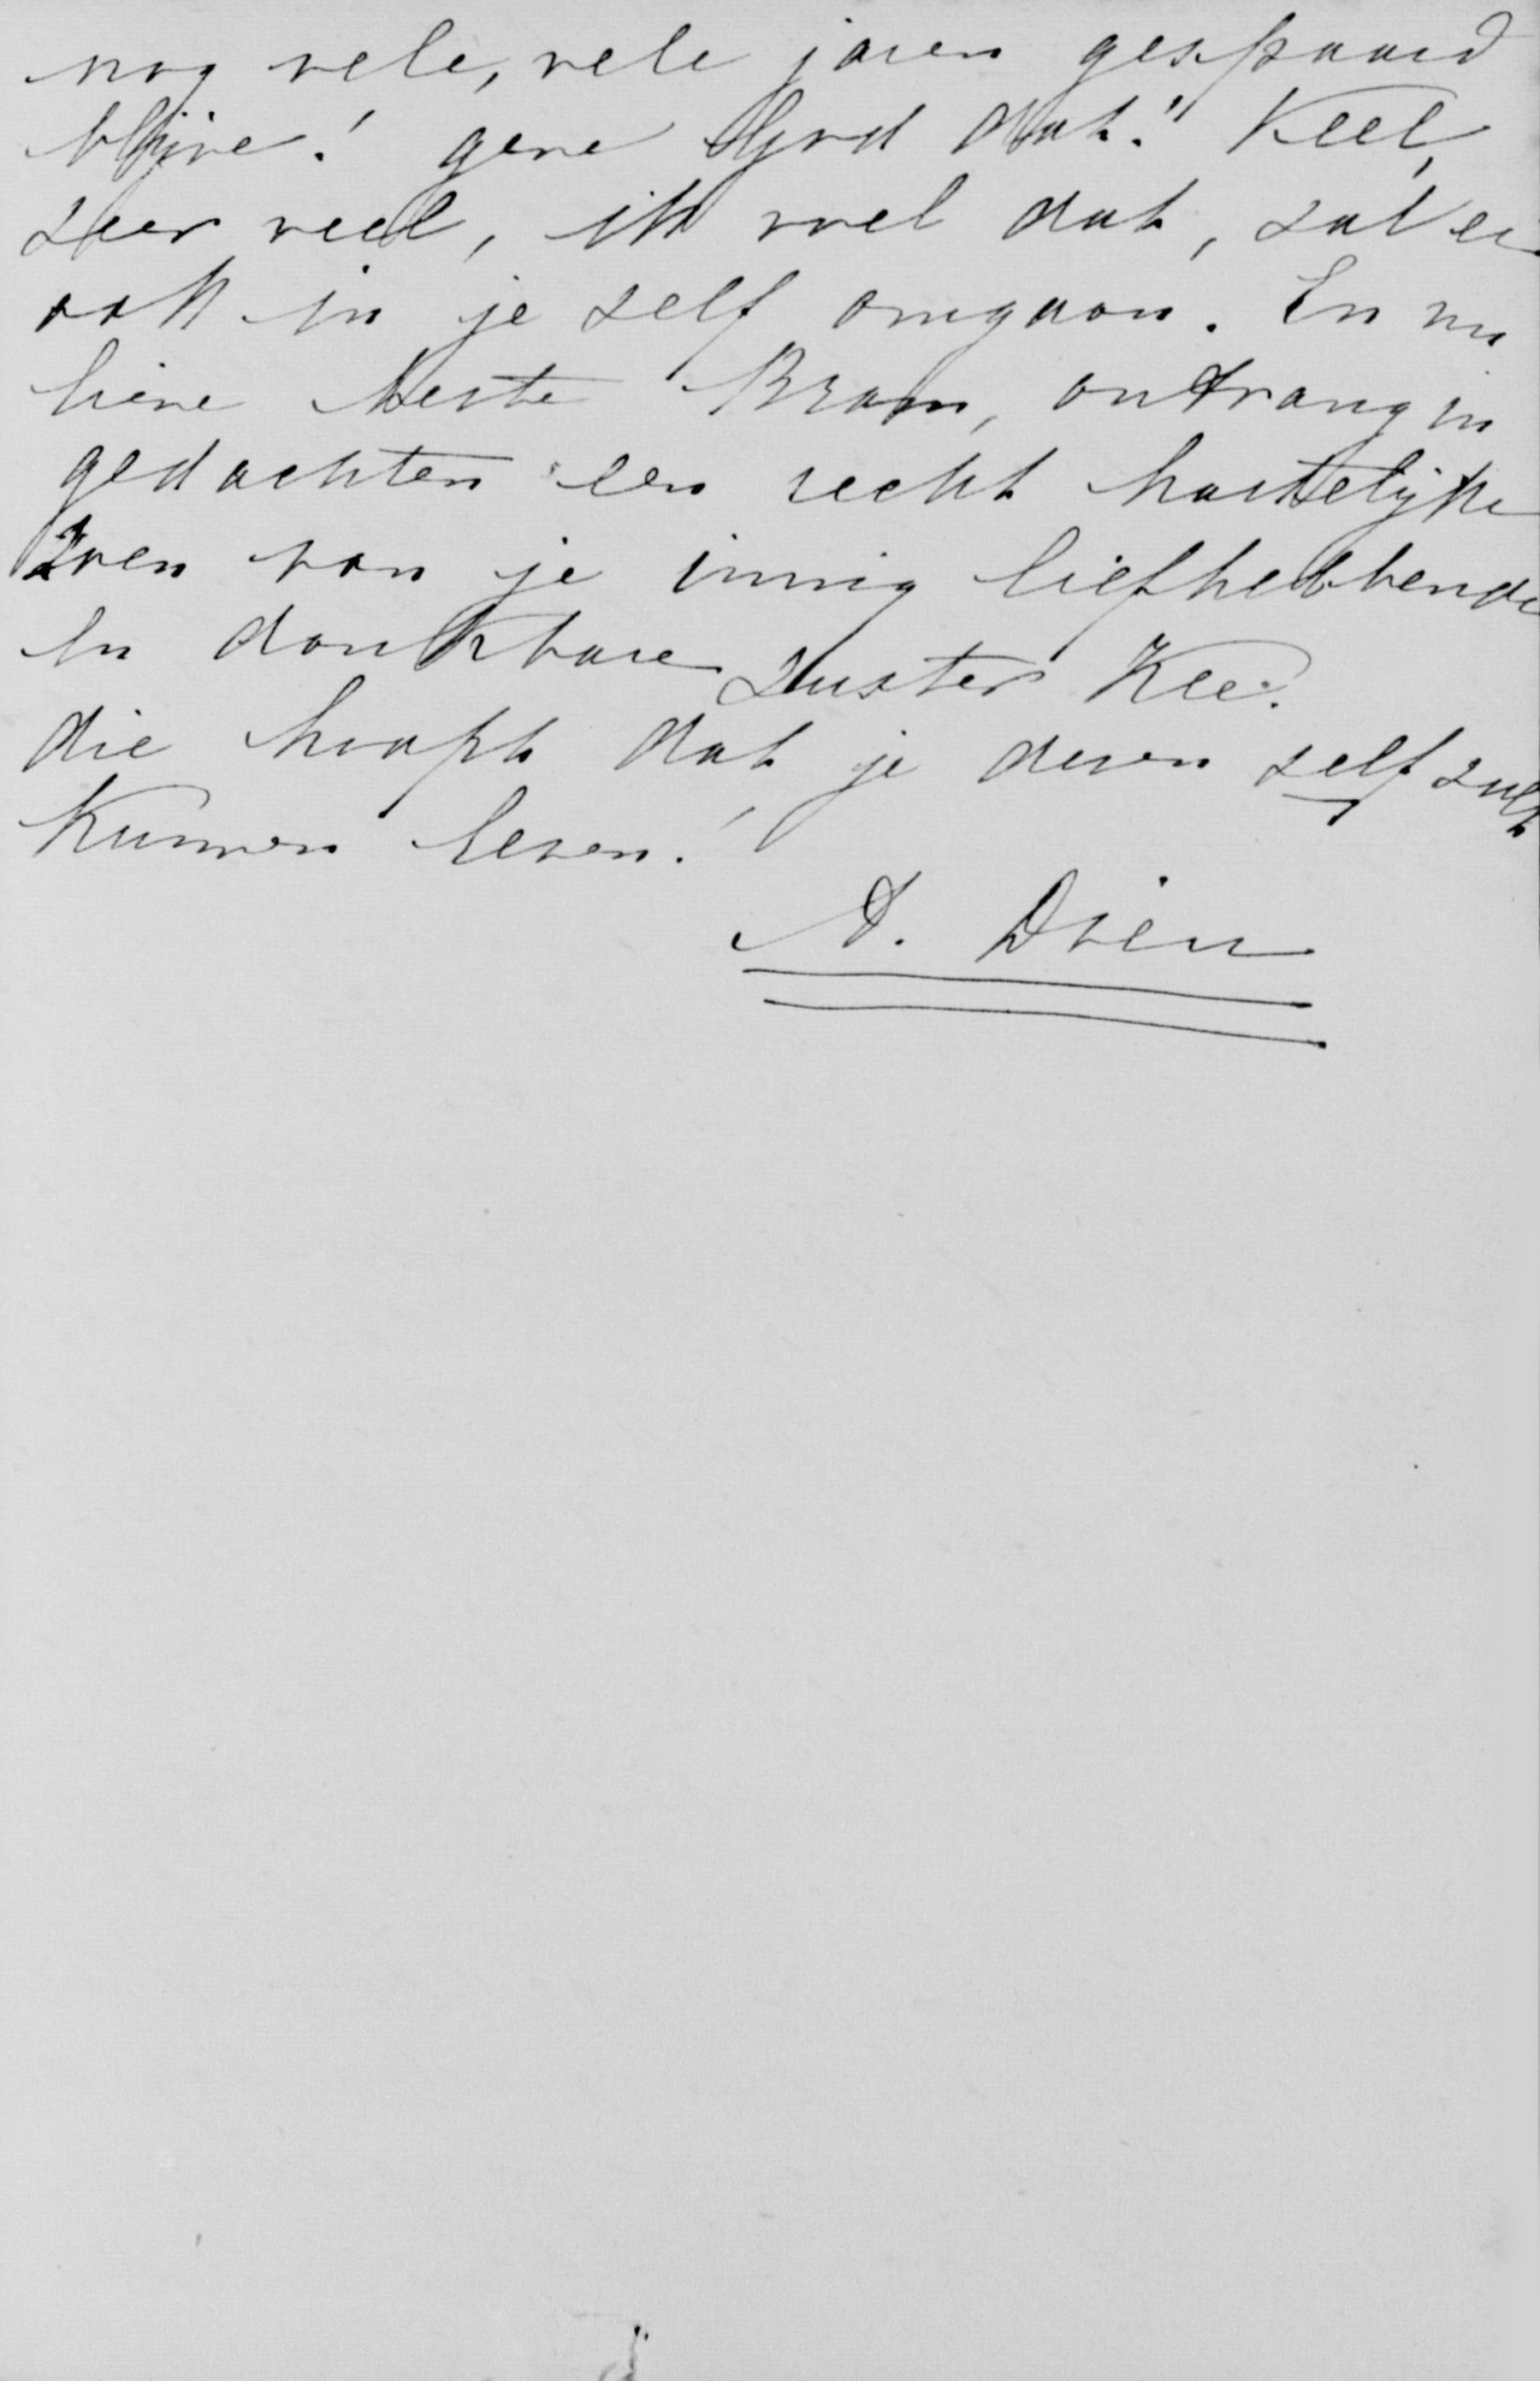 nog vele, vele jaren gespaard
blijve! geve God dat!" Veel,
zeer veel, ik voel dat, zal er
ook in je zelf omgaan. En nu
lieve beste Bram, ontvang in
gedachten een recht hartelijke
zoen van je innig liefhebbende
en dankbare zuster Kee.
die hoopt dat je dezen zelf zult
kunnen lezen!
A. Dien